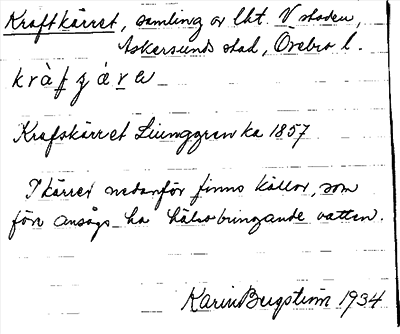 Kraftkärret, samling av lht. V staden,
Askersunds stad, Örebro l.
kràfʒǽrə
Krafskärret Liunggren ka 1857
I kärret nedanför finns källor, som
förr ansågs ha hälsobringande vatten.
Karin Bergström 1934